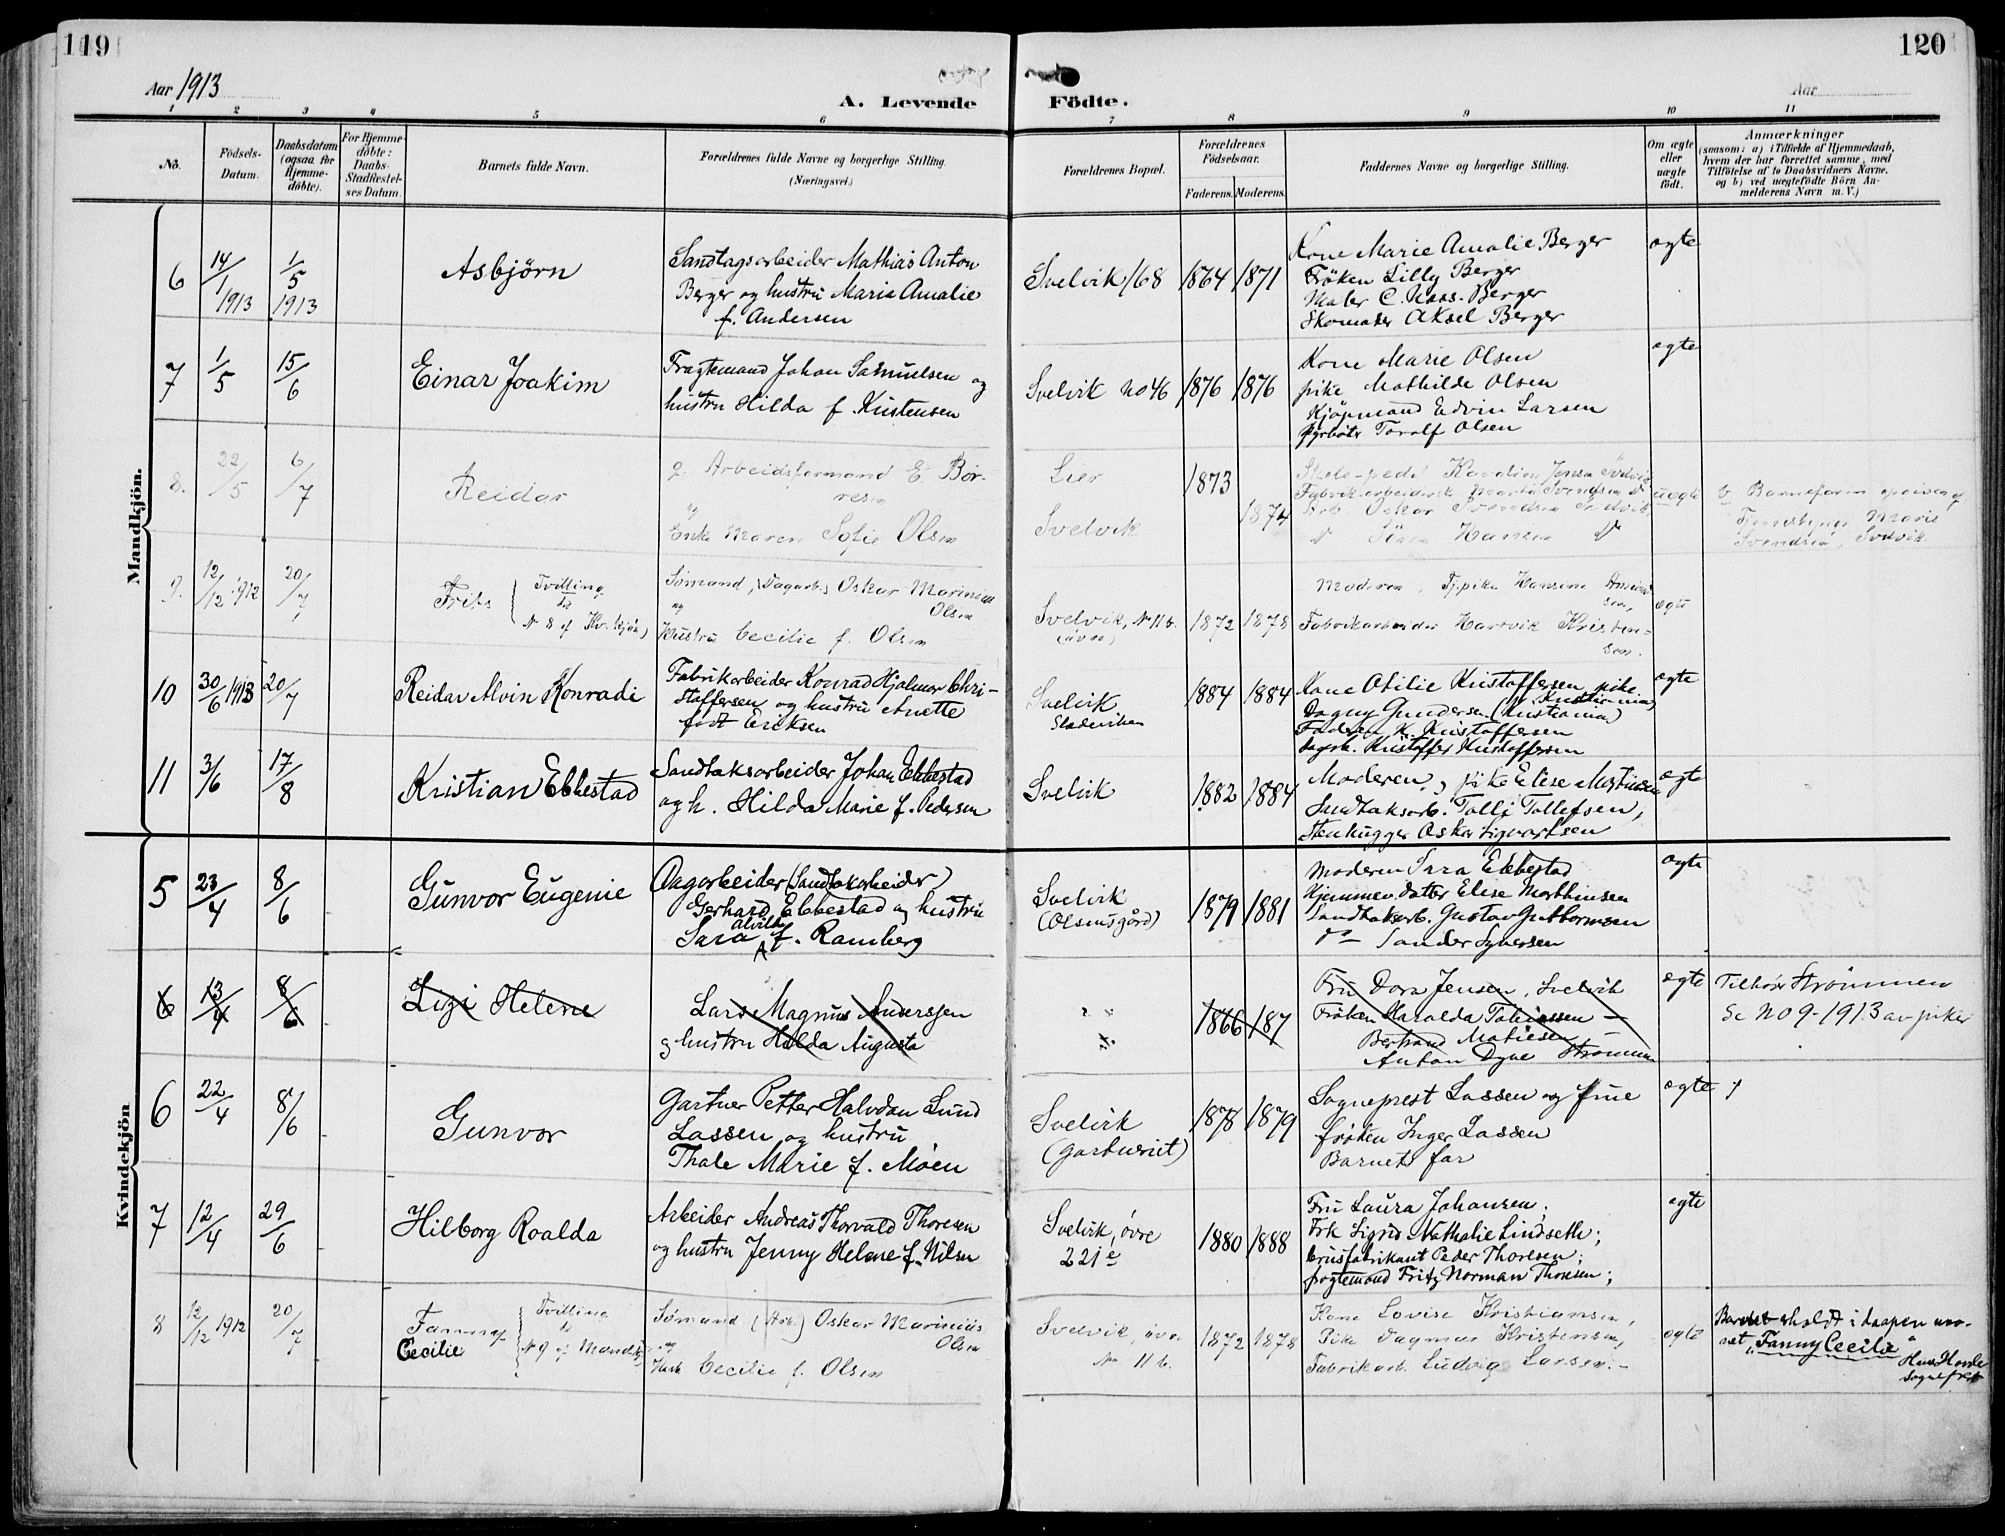 119
120
Aar 1913
A. Levende Födte.
Aar
1 2 3 4 5 6 7 8 9 10 11
No.
Födsels-Datum.
Daabsdatum (ogsaa for Hjemme-döbte).
For Hjemme-döbte: Daabs-Stadfæstel-ses Datum.
Barnets fulde Navn.
Forældrenes fulde Navne og borgerlige Stilling.
(Næringsvei.)
Forældrenes Bopæl.
Forældrenes Födselsaar.
Faderens. Moderens.
Faddernes Navne og borgerlige Stilling.
Om ægte eller uægte födt.
Anmærkninger
(saasom: a) i Tilfælde af Hjemmedaab,
hvem der har forrettet samme, med
Tilföielse af to Daabsvidners Navne.
og b) ved uægtefödte Börn An-
melderens Navn m. V.)
Mandkjön.
6 14/1 1913 1/5 1913 Asbjörn
Sandtagsarbeider Mathias Anton
Berger og hustru Maria Amalie
f. Andersen
Svelvik 168 1864 1871
Kone Marie Amalie Berger
Fröken Lilly Berger
Maler C. Berger
Skomaker Aksel Berger
ægte
7 1/5 15/6 Einar Joakim
Fragtemand Johan Samuelsen og
hustru Hilda f. Kristensen
Svelvik No 46 1876 1876
Kone Marie Olsen
pike Mathilde Olsen
Kjöpmand Edvin Larsen
Fyrböter Toralf Olsen
ægte
8. 22/5 6/7 Reidar
Arbeidsformand E. Bör-
resen
og
Enke Maren Sofie Olsen
Lier
Svelvik
1873
1874
Karoline Jensen Svelvik
Fabrikarbeiderske Svendsen
Arb. Oskar Svendsen Svelvik
Hansen
uægte
b. Barnefaren opgiven af
Marie
Svendsen, Svelvik
9. 12/12 1912 20/7 Frits
Tvilling
til
No 8 af Kv.kjön)
Sømand, (Dagarb.) Oskar Marinius
Olsen
og
Hustru Cecilie f. Olsen
Svelvik, No 11 b.
(övre)
1872 1878
Moderen, Tj.pike Hansine
sen,
Fabrikarbeider Hartvik Kristen-
sen.
ægte
10 30/6 1913 20/7 Reidar Alvin Konradi
Fabrikarbeider Konrad Hjalmar Chri-
stoffersen og hustru Anette
född Eriksen
Svelvik
1884 1884
Kone Otilie Kristoffersen, pike
Dagny Gundersen (Kristiania)
Faderen K. Kristoffersen
Dagarb. Kristoffer Kristoffersen
ægte
11 3/6 17/8 Kristian Ebbestad
Sandtaksarbeider Johan Ebbestad
og h. Hilda Marie f. Pedersen
Svelvik 1882 1884
Moderen, pike Elise Mortinsen
Sandtaksarb. Tolle Tollefsen,
Stenhugger Oskar Sigvartsen
ægte
Kvindekjön
5 23/4 8/6 Gunvor Eugenie
Dagarbeider (Sandtakarbeider)
Gerhard Ebbestad og hustru
Alvilde
Sara f. Ramberg
Svelvik
(Olsensgård)
1879 1881
Moderen Sara Ebbestad
Hjemmev. datter Elise Marthinsen
Sandtaksarb. Gustav Guttormsen
do Sander Syversen
ægte
6 13/4 8/6 Lizi Helene
Lars Magnus Anderssen
og hustru Halda Augusta
1866 187
Fru Dora Jensen, Svelvik
Fröken Haralda Tobiassen
Bertrand Matiesen
Anton Dyve Strömmen
ægte
Tilhör Strømmen
Se No 9-1913 av piker
6 22/4 8/6 Gunvor
Gartner Petter Halvdan Lund
Lassen og hustru
Thale Marie f. Moen
Svelvik
1878 1879
Sogneprest Lassen og frue
fröken Inger Lassen
Barnets far
ægte
7 12/4 29/6 Hilborg Roalda
Arbeider Andreas Thorvald Thoresen
og hustru Jenny Helene f. Nilsen
Svelvik, övre
221 e
1880 1888
Fru Laura Johansen;
Frk Sigrid Nathalie Lindseth;
brusfabrikant Peder Thoresen;
fragtemand Fritz Norman Thoresen;
ægte
8 12/12 1912 20/7 Fanny
Cecilie
Tvilling
til
No 9 af Mandkj.
Sømand (Arb.) Oskar Marinius
Olsen
og
Hust. Cecilie f. Olsen
Svelvik, övre
No 11 b.
1872 1878
Kone Lovise Kristiansen,
Pike Dagmar Kristensen,
Fabrikarb. Ludvig Larsen.
ægte
Barnet erholdt i daapen nav-
net „Fanny Cecilie"
Hovde
sogneprest